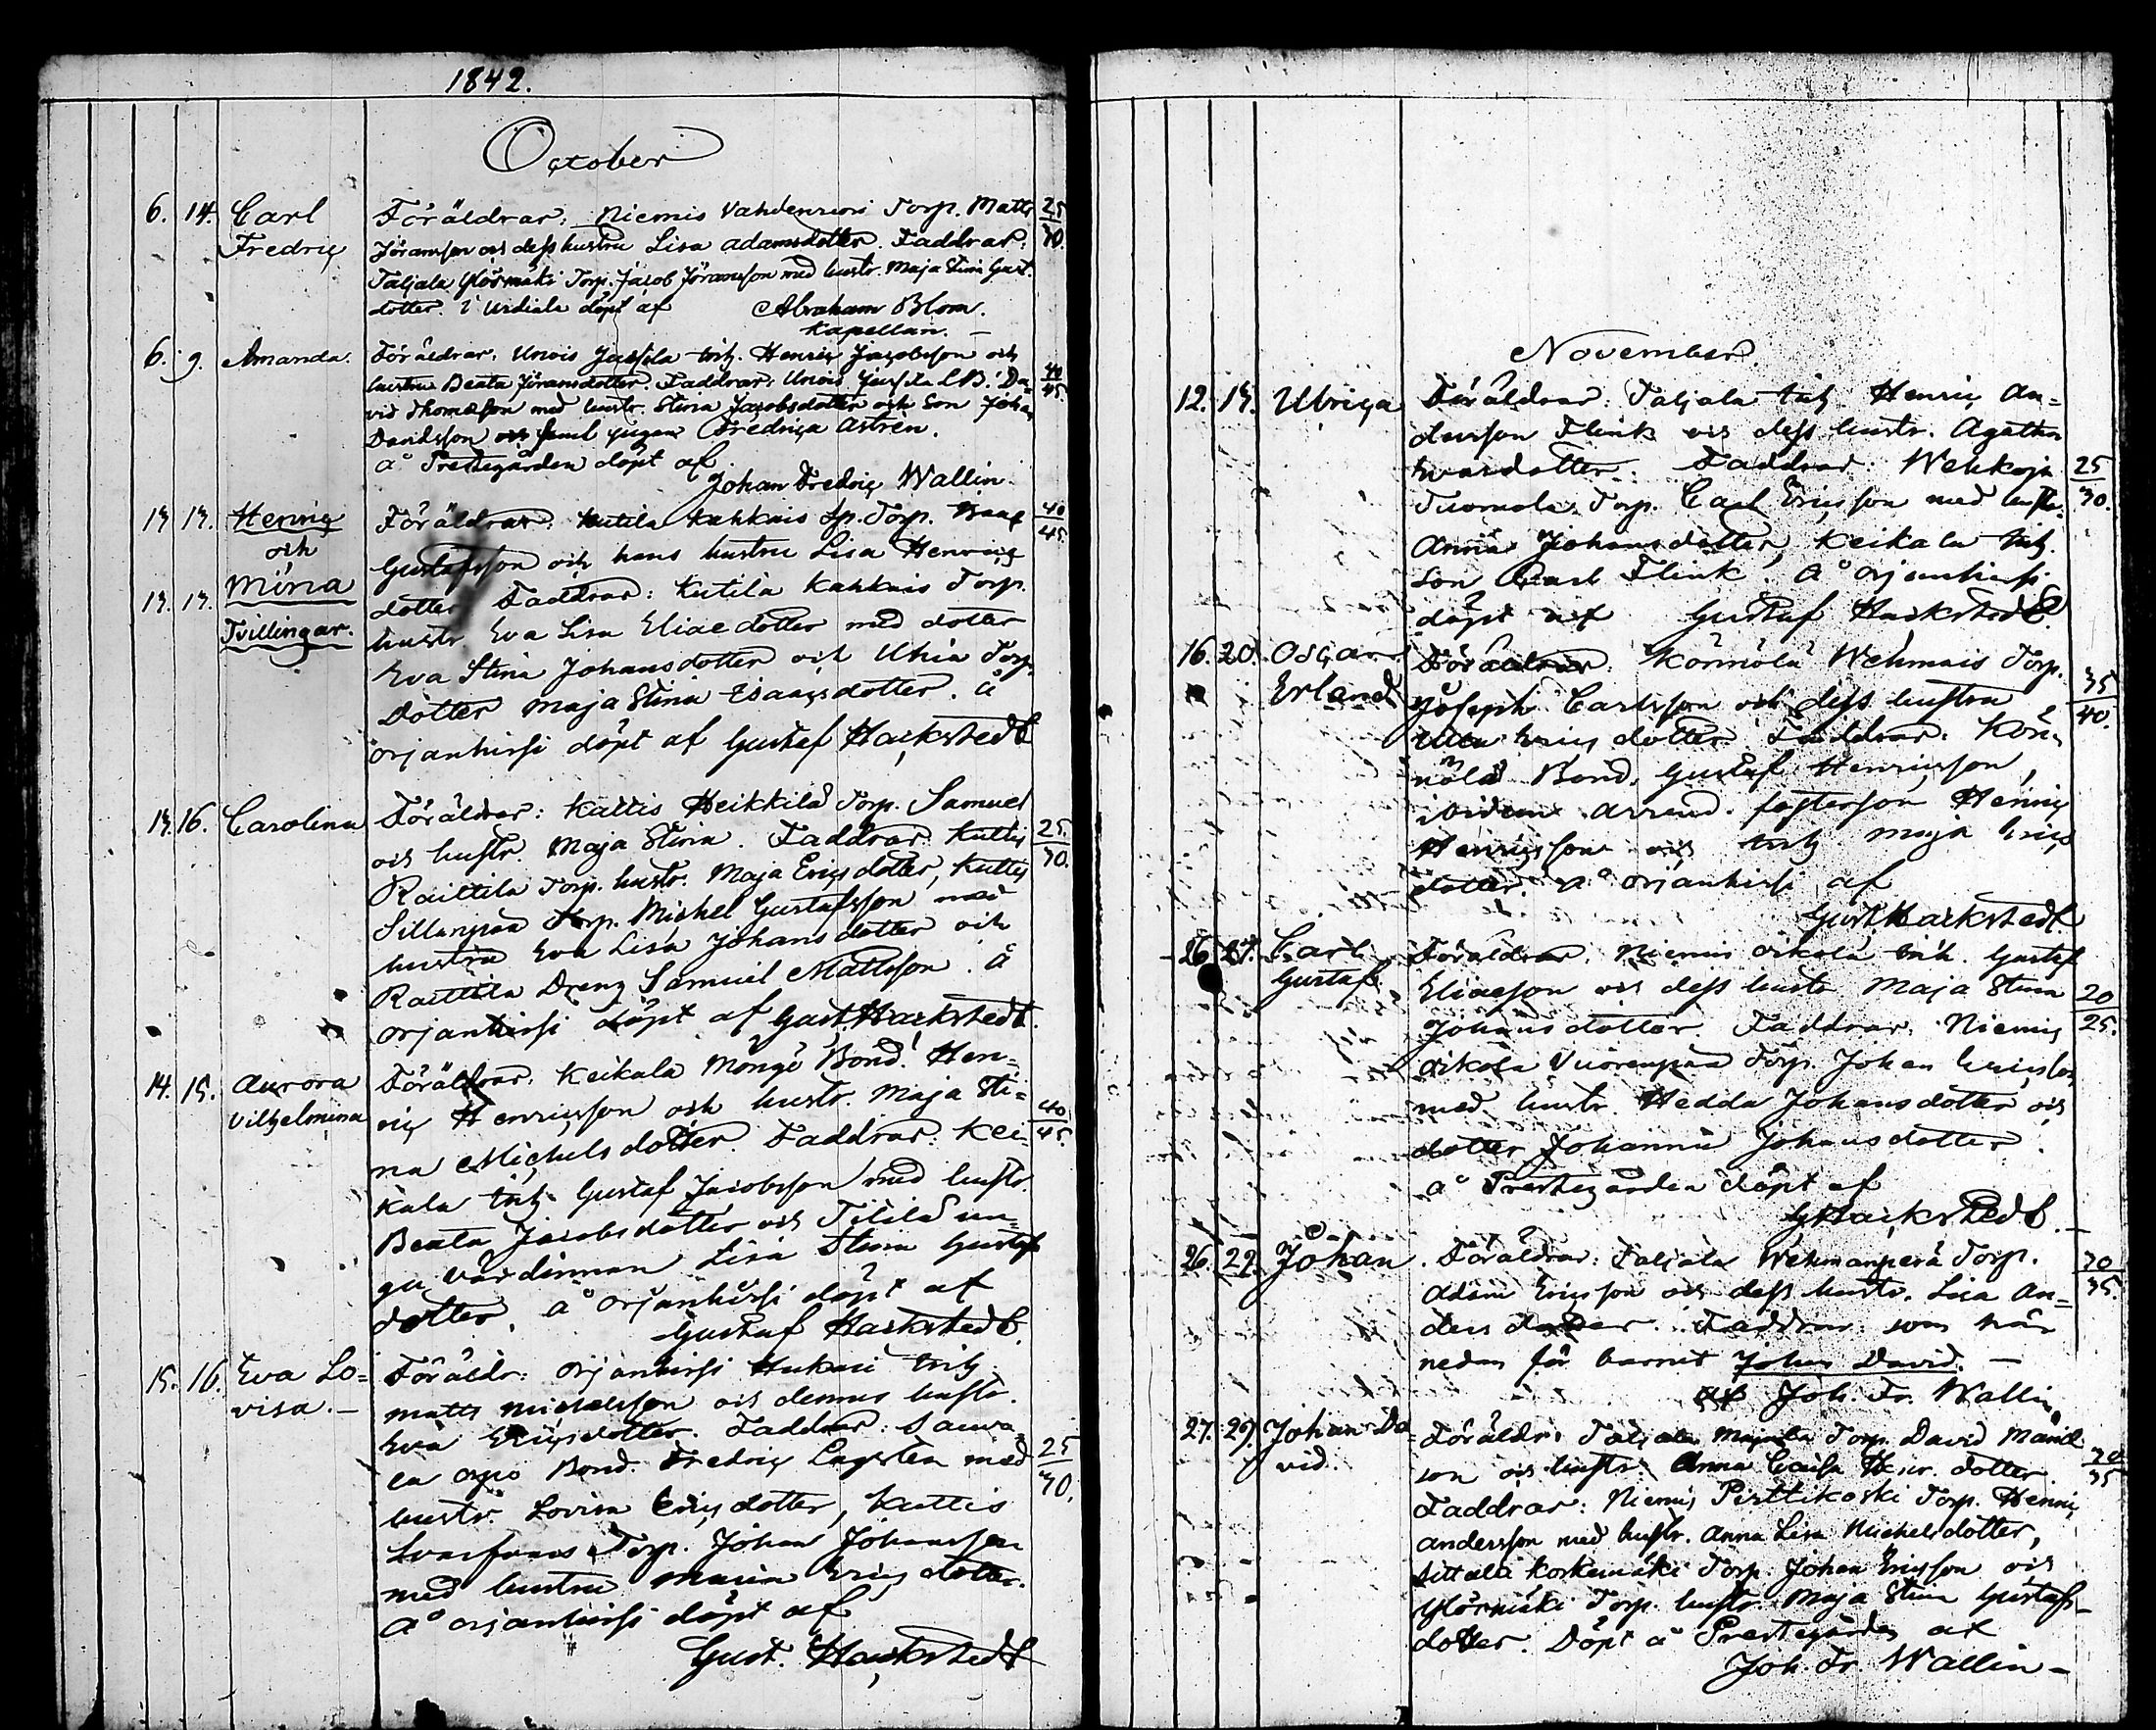 1842.
October
6. 14. Carl Föräldrar: Niemis Vahdenrien Torp. Matts 25/30.
Fredric Jöransson och dess hustru Lisa Adamsdotter. Faddrar:
Taljala Ylösmäki Torp. Jacob Jöransson med hustr. Maja Stina Gust.
dotter. i Urdiala döpt af Abraham Blom.
Kapellan. —
6. 9. Amanda. Föräldrar: Unois Jussila Inh. Henric Jacobsson och
hustru Beata Jöransdotter. Faddrar: Unois Jussila LB. Da= 40/45.
vid Thomasson med hustr. Stina Jacobsdotter och Son Johan
Davidsson och Fredrica Astren.
å Prestegården döpt af
Johan Fredric Wallin.
13. 13. Henric Föräldrar: Kutila Kahkais Sp. Torp. Isaac 40/45.
och Gustafsson och hans hustru Lisa Henrics
13. 13. Mina dotter Faddrar: Kutila Kahkais Torp.
Tvillingar. hustr. Eva Lisa Eliae dotter med dotter
Eva Stina Johansdotter och Uhia Torp.
Dotter Maja Stina Isaacsdotter. å
orjanhirsi döpt af Gustaf Hackstedt
13. 16. Carolina Föräldrar: Kattis Heikkilä Torp. Samuel
och hustr. Maja Stina. Faddrar: Kuttis 25/30.
Raittila Torp. hustr. Maja Ericsdotter, Kuttis
Sillanpää Torp. Michel Gustafsson med
hustru Eva Lisa Johansdotter och
Raittila Dreng Samuel Mattsson. å
orjanhirsi döpt af Gust. Hackstedt.
14. 15. Aurora Föräldrar: Keikala Mongo Bond. Hen=
Vilhelmina ric Henricsson och hustr. Maja Sti= 40/45.
na Michelsdotter. Faddrar: Kei=
kala Inh. Gustaf Jacobsson med hustr.
Beata Jacobsdotter och Tililä un=
ga värdinnan Lisa Stina Gustafs
dotter. å orjanhirsi döpt af
Gustaf Hackstedt.
15. 16. Eva Lo= Föräldr: orjanhirsi Hukari Inh.
visa. — Matts Michelsson och dennes hustr.
Eva Ericsdotter. Faddrar: Sauva
la Bond. Fredric Lagsten med 25/30.
hustr. Lovisa Ericsdotter, Kattis
Torp. Johan Johansson
med hustru Maria Ericsdotter.
å orjanhirsi döpt af
Gust. Hackstedt
November
12. 13. Ulrica Föräldrar: Taljala Inh. Henric An=
dersson Flink och dess hustr. Agatha
Ivarsdotter. Faddrar: Wehkoja 25/30.
Tuomola Torp. Carl Ericsson med hustr.
Anna Johansdotter, Keikala Inh.
son Carl Flink. å orjanhirsi
döpt af Gustaf Hackstedt.
16. 20. Oscar Föräldrar: Könnölä Wehmais Torp. 35/40.
Erland Joseph Carlsson och dess hustru
Ulla Erics dotter. Faddrar: Kön=
nölä Bond. Gustaf Henricsson,
ibidem Arrend. fosterson Henric
Henricsson och Inh. Maja Erics
dotter. å orjanhirsi af
Gust. Hackstedt.
26. 27. Carl Föräldrar: Niemis Oikola Inh. Gustaf
Gustaf. Eliaeson och dess hustr. Maja Stina 20/25.
Johansdotter. Faddrar: Niemis
Oikola Vuorenpää Torp. Johan Ericsson
med hustr. Hedda Johansdotter och
dotter Johanna Johansdotter.
å Prestegården döpt af
G Hackstedt. —
26. 29. Johan. Föräldrar: Taljala Wehmanperä Torp. 30/35.
Adam Ericsson och dess hustr. Lisa An=
ders dotter. Faddrar: som här
nedan för barnet Johan David. —
af Joh. Fr. Wallin
27. 29. Johan Da= Föräldr: Taljala Torp. David 30/35
vid. son och hustr: Anna Caisa Henr. dotter.
Faddrar: Niemis Perttikoski Torp. Henric
Andersson med hustr. Anna Lisa Michelsdotter,
Sittala Korkemäki Torp. Johan Ericsson och
Ylösmäki Torp. hustr. Maja Stina Gustafs-
dotter. Döpt å Prestegården af
Joh. Fr. Wallin —